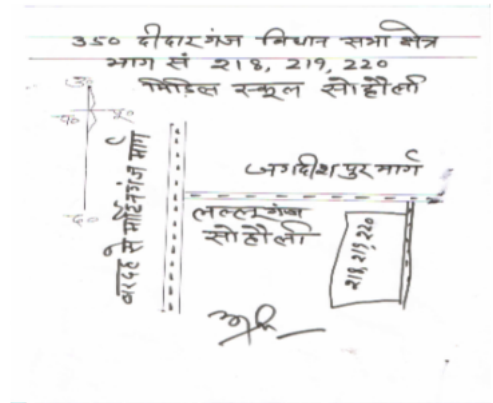 350 दीदारगंज विधान सभा क्षेत्र
भाग सं 218, 219, 220
मिडिल स्कूल सोहौली
उ०
प०
पू०
द०
जगदीशपुर मार्ग
लल्लूगंज
सोहौली
218, 219, 220